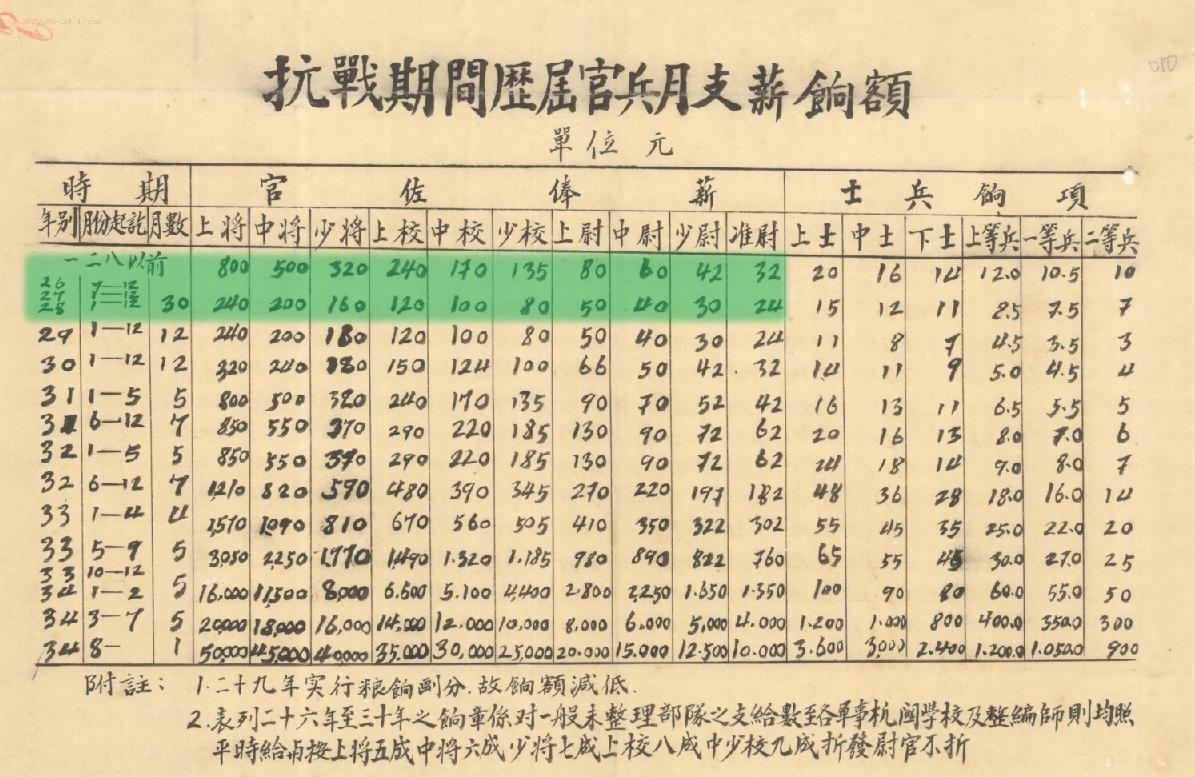 抗戰期間歷屆官兵月支薪餉額
單位元
時期 官佐俸薪 士兵餉項
年別 月份起訖 月數 上将 中将 少将 上校 中校 少校 上尉 中尉 少尉 准尉 上士 中士 下士 上等兵 一等兵 二等兵
一二八以前 800 500 320 240 170 135 80 60 42 32 20 16 14 12.0 10.5 10
26 7—12
27 1—12
28 1—12 30 240 200 160 120 100 80 50 40 30 24 15 12 11 8.5 7.5 7
29 1—12 12 240 200 180 120 100 80 50 40 30 24 11 8 7 4.5 3.5 3
30 1—12 12 320 240 180 150 124 100 66 50 42 32 14 11 9 5.0 4.5 4
31 1—5 5 800 500 320 240 170 135 90 70 52 42 16 13 11 6.5 5.5 5
31 6—12 7 850 550 370 290 220 185 130 90 72 62 20 16 13 8.0 7.0 6
32 1—5 5 850 550 370 290 220 185 130 90 72 62 24 18 14 9.0 8.0 7
32 6—12 7 1210 820 590 480 390 345 270 220 197 182 48 36 28 18.0 16.0 14
33 1—4 4 1,570 1,090 810 670 560 505 410 350 322 302 55 45 35 25.0 22.0 20
33 5—9 5 3050 2250 1,770 1,490 1.320 1.185 980 890 822 760 65 55 45 30.0 27.0 25
33 10—12
34 1—2 5 16,000 11,500 8,000 6.600 5.100 4,400 2.800 2,250 1.650 1.350 100 90 80 60.0 55.0 50
34 3—7 5 20,000 18,000 16,000 14,000 12.000 10,000 8,000 6.000 5,000 4.000 1.200 1.000 800 400.0 350.0 300
34 8— 1 50,000 45,000 40,000 35,000 30,000 25,000 20.000 15.000 12.500 10.000 3.600 3,000 2.400 1.200.0 1.050.0 900
附註： 1.二十九年实行粮餉劃分.故餉額減低.
2.表列二十六年至三十年之餉章係对一般未整理部隊之支給數至各軍事机関學校及整編師則均照
平時給与按上将五成中将六成少将七成上校八成中少校九成折發尉官不折